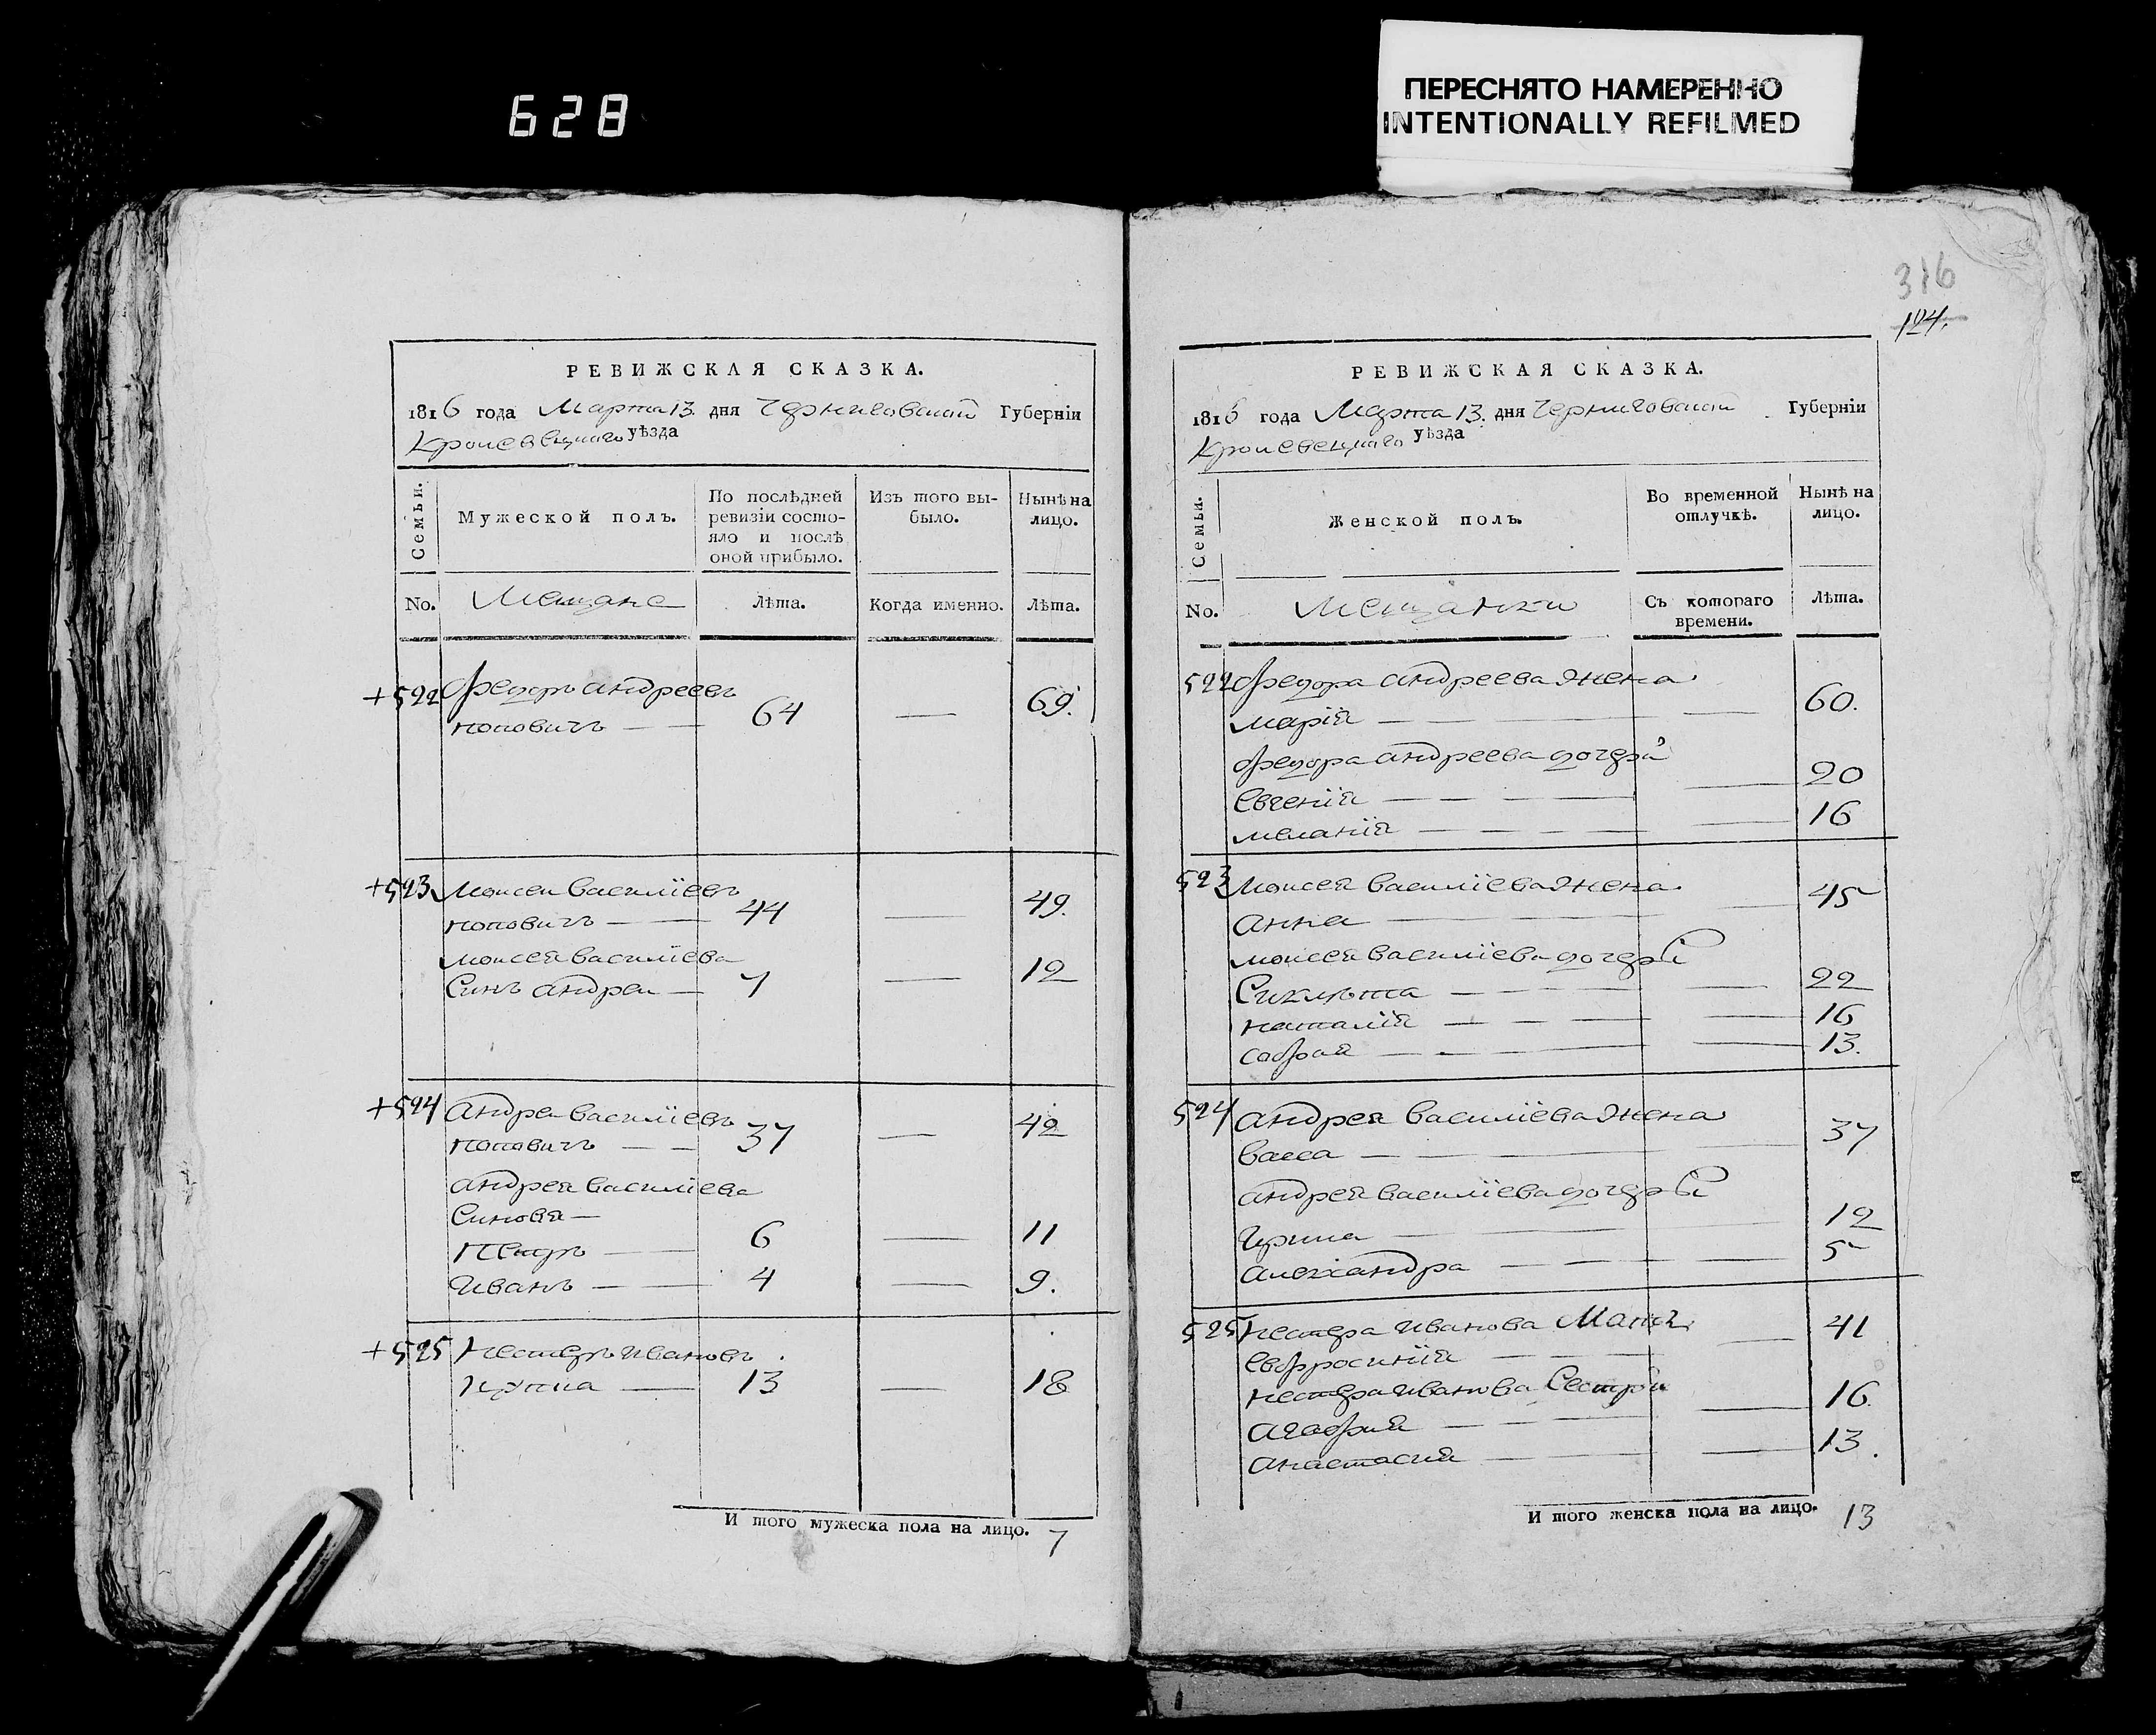 628
ПЕРЕСНЯТО НАМЕРЕННО
INTENTIONALLY REFILMED
316
124.
РЕВИЖСКАЯ СКАЗКА.
1816 года Марта 13. дня Черниговской Губерніи
Кролевецкаго уѣзда
Семьи.
Мужеской полъ.
По послѣдней
ревизіи состо-
яло и послѣ
оной прибыло.
Изъ того вы-
было.
Нынѣ на
лицо.
No. Мещане Лѣта. Когда именно. Лѣта.
+522 Федоръ андреевъ
поповичъ — 64 — 69.
+523 Моисеи василіевъ
поповичъ — 44 — 49.
моисея василіева
Синъ андреи — 7 — 12
+524 андреи василіевъ
поповичъ — — 37 — 42
андрея василіева
Синовя —
Петръ — 6 — 11
Иванъ — 4 — 9.
+525 Нестеръ ивановъ
13 — 18
И того мужеска пола на лицо. 7
РЕВИЖСКАЯ СКАЗКА.
1816 года Марта 13. дня Черниговской Губерніи
Кролевецкаго уѣзда
Семьи.
Женской полъ.
Во временной
отлучкѣ.
Нынѣ на
лицо.
No. Мещанки Съ котораго
времени.
Лѣта.
522 Федора андреева жена
марія — — — 60.
федора андреева дочери
евгенія — — — 20
меланія — — — — 16
523 Моисея василіева жена
анна — — — 45
моисея василіева дочери
Сиклѣта — — — — 22
наталія — — — — 16
софия — — — — 13.
524 андрея василіева жена
васса — — — 37
андрея василіева дочери
Ирина — — — 12
александра — — — — 5
525 нестера иванова Мать
евфросинія — — — 41
нестера иванова Сестри
агафия — — — 16.
анастасия — — — 13.
И того женска пола на лицо. 13